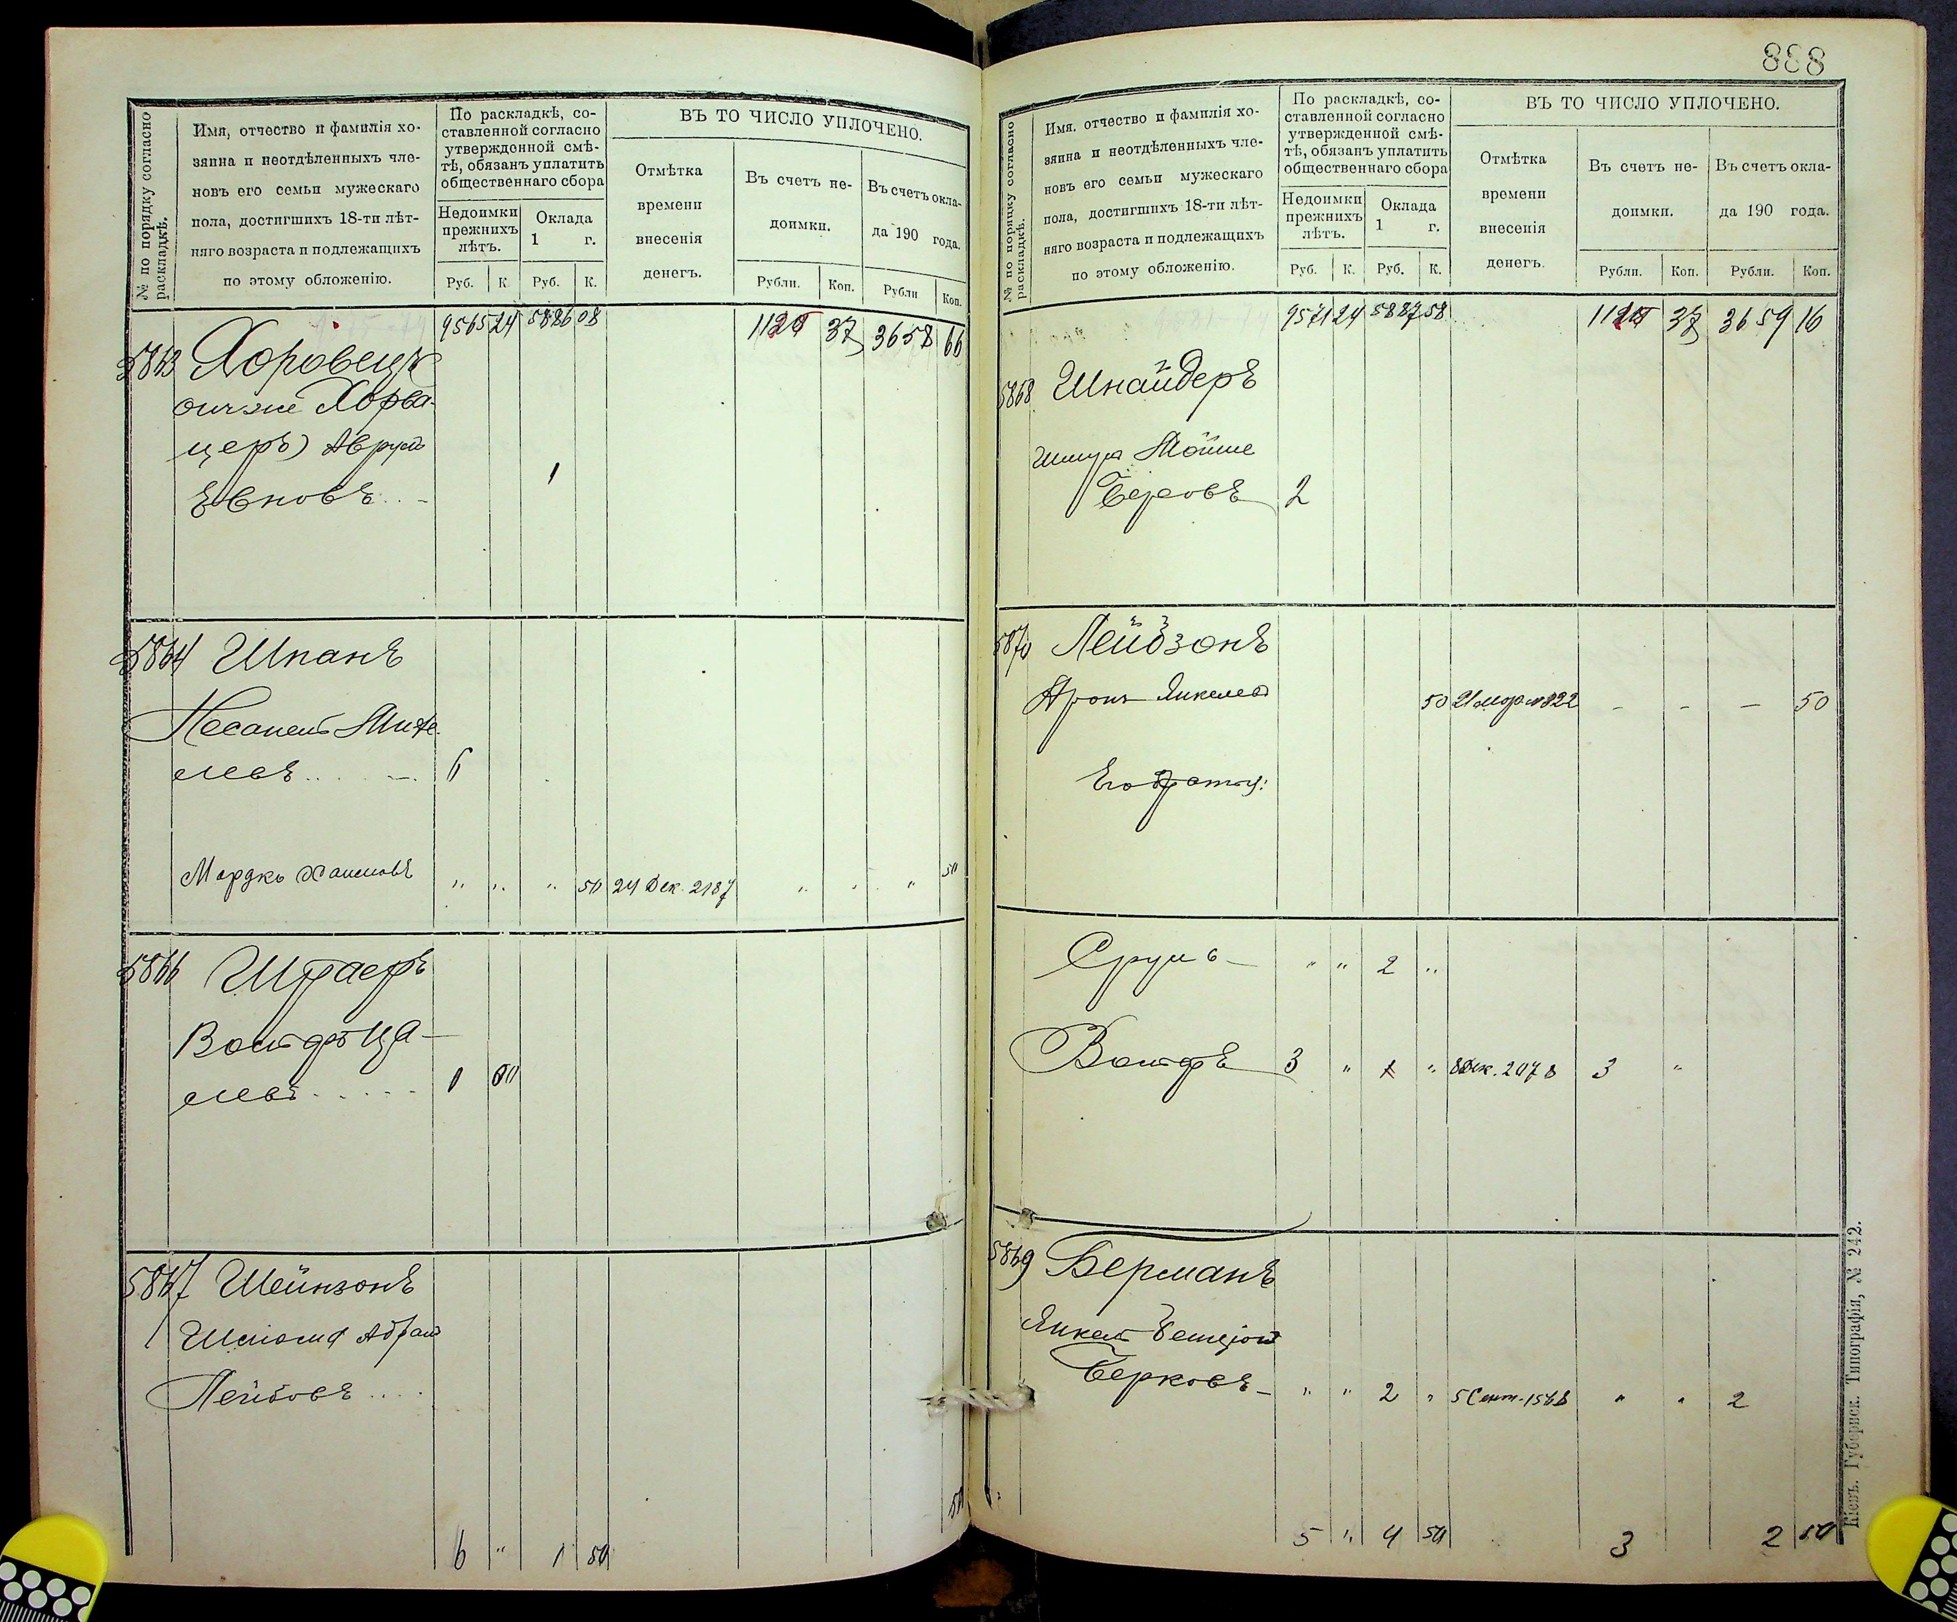 № по порядку согласно раскладкѣ.
Имя, отчество и фамилія хо-
зяина и неотдѣленныхъ чле-
новъ его семьи мужескаго
пола, достигшихъ 18-ти лѣт-
няго возраста и подлежащихъ
по этому обложенію.
По раскладкѣ, со-
ставленной согласно
утвержденной смѣ-
тѣ, обязанъ уплатить
общественнаго сбора
Недоимки
прежнихъ
лѣтъ.
Оклада
1 г.
Руб. К. Руб. К.
ВЪ ТО ЧИСЛО УПЛОЧЕНО.
Отмѣтка
времени
внесенія
денегъ.
Въ счетъ не-
доимки.
Въ счетъ окла-
да 190 года.
Рубли. Коп. Рубли Коп.
9565 24 5886 08 37 3658 66
5863 Хоровецъ
онъ же Хорва-
церъ) Аврумъ
Евновъ 1
5864 Шпанъ
елевъ 6
Мордко Хаимовъ " " " 50 24 Дек. 2187 " " " 50
5866 Штраеръ
Вольфъ Ца-
левъ
5867 Шейнзонъ
Абрам
Лейбовъ
50
6 " 1 50
888
№ по порядку согласно раскладкѣ.
Имя, отчество и фамилія хо-
зяина и неотдѣленныхъ чле-
новъ его семьи мужескаго
пола, достигшихъ 18-ти лѣт-
няго возраста и подлежащихъ
по этому обложенію.
По раскладкѣ, со-
ставленной согласно
утвержденной смѣ-
тѣ, обязанъ уплатить
общественнаго сбора
Недоимки
прежнихъ
лѣтъ.
Оклада
1 г.
Руб. К. Руб. К.
ВЪ ТО ЧИСЛО УПЛОЧЕНО.
Отмѣтка
времени
внесенія
денегъ.
Въ счетъ не-
доимки.
Въ счетъ окла-
да 190 года.
Рубли. Коп. Рубли. Коп.
9571 24 5887 58 37 3659 16
5868 Шнайдеръ
Шмуль Мойше
Берковъ 2
5870 Лейбзонъ
Аронъ Янкелевъ 50 922 - - - 50
Его братья:
Сруль - " " 2 "
Вольфъ 3 " 1 " 8 Дек. 2078 3 "
5869 Берманъ
Янкель
Берковъ - " " 2 " 5 Сент. 1568 " " 2
5 " 4 50 3 2 50
Кіевъ. Губернск. Типографія, № 242.